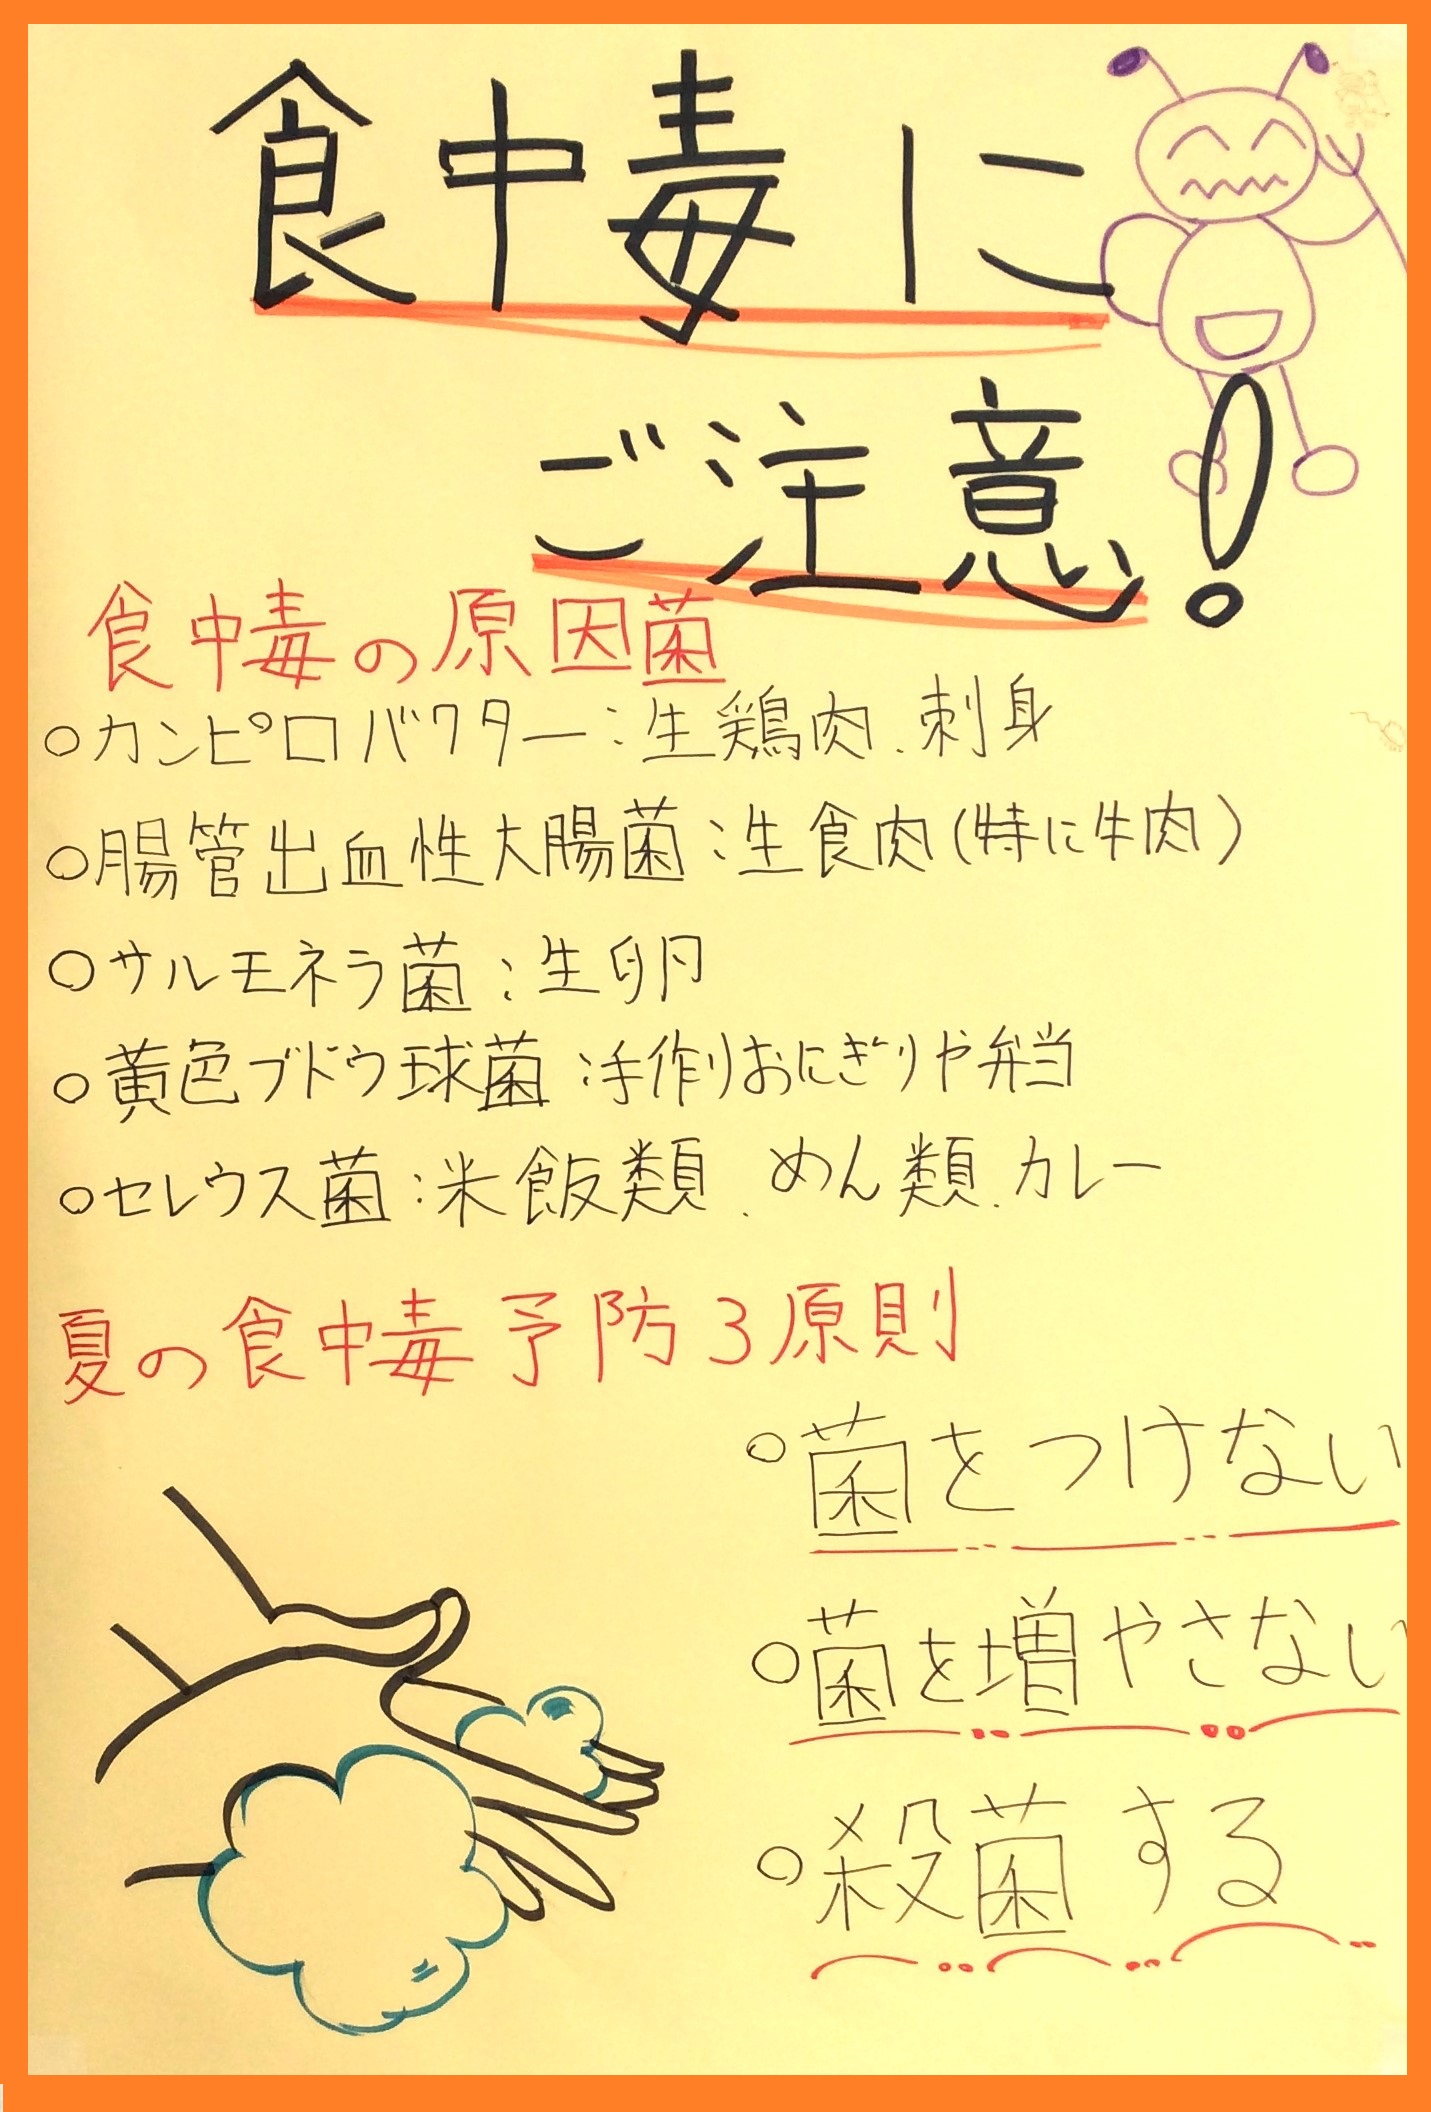 食中毒に
ご注意!
食中毒の原因菌
○カンピロバクター:生鶏肉、刺身
○腸管出血性大腸菌:生食肉(特に牛肉)
○サルモネラ菌:生卵
○黄色ブドウ球菌:手作りおにぎりや弁当
○セレウス菌:米飯類、めん類、カレー
夏の食中毒予防3原則
○菌をつけない
○菌を増やさない
○殺菌する